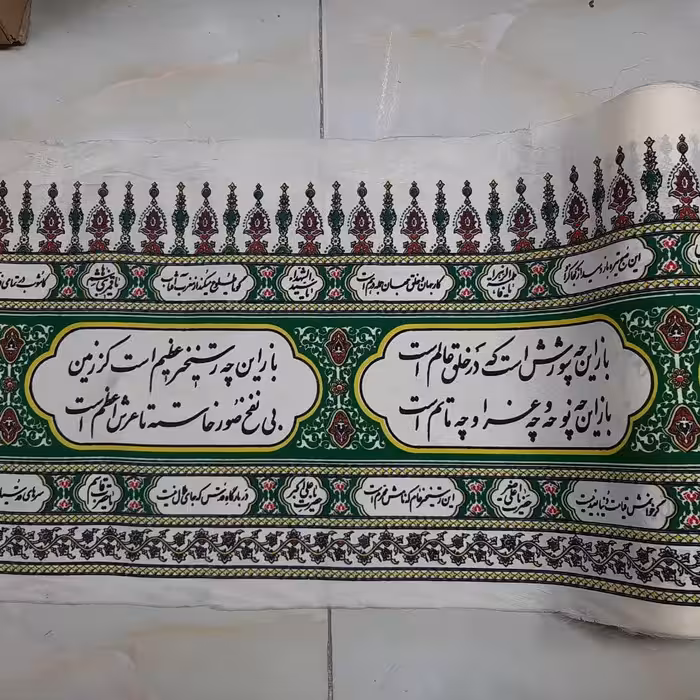 این صبح تیره باز دمید از کجا کزو
یا فاطمة الزهرا
کار جهان و خلق جهان جمله درهم است
یا سیدالشهدا
گویا طلوع میکند از مغرب آفتاب
یا قمر بنی هاشم
کاشوب در تمامی
باز این چه شورش است که در خلق عالم است
باز این چه نوحه و چه عزا و چه ماتم است
باز این چه رستخیز عظیم است کز زمین
بی نفخ صور خاسته تا عرش اعظم است
گر خوانمش قیامت دنیا بعید نیست
حضرت علی اصغر
این رستخیز عام که نامش محرم است
حضرت علی اکبر
در بارگاه قدس که جای ملال نیست
یا حضرت قاسم
سرهای قدسیان